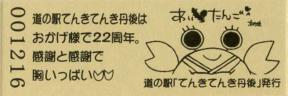 001216
道の駅てんきてんき丹後は
おかげ様で22周年。
感謝と感謝で
胸いっぱい♡♡
あい♥たんご
道の駅「てんきてんき丹後」発行